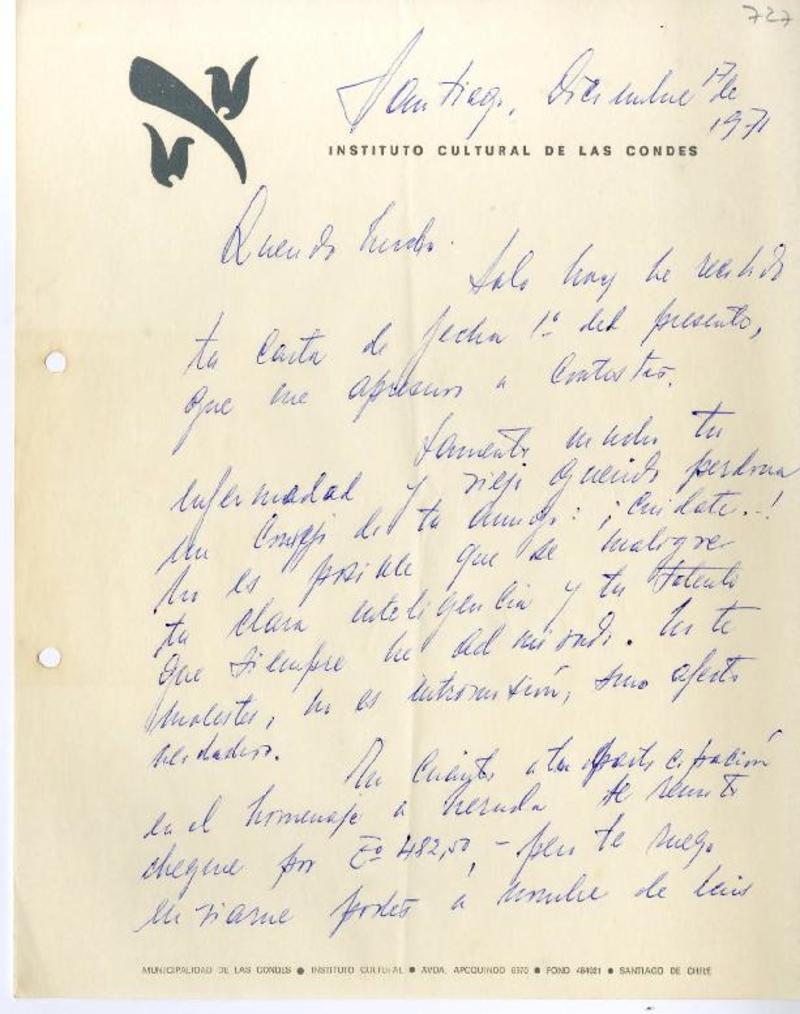 727
Santiago, Diciembre 17 de
1971
INSTITUTO CULTURAL DE LAS CONDES
Querido
Solo hoy he recibido
tu carta de fecha 1º del presente,
que me apresuro a contestar.
Lamento mucho tu
enfermedad y viejo querido perdona
un consejo de tu amigo: ¡cuidate.-!
No es posible que se malogre
tu clara inteligencia y tu talento
que siempre he admirado. No te
molestes, no es intromisión, sino afecto
verdadero.
En cuanto a tu participación
en el homenaje a Neruda te remito
cheque por Eº 482,50, - pero te ruego
enviarme poder a nombre de Luis
MUNICIPALIDAD DE LAS CONDES ● INSTITUTO CULTURAL ● AVDA. APOQUINDO 6570 ● FONO 484021 ● SANTIAGO DE CHILE